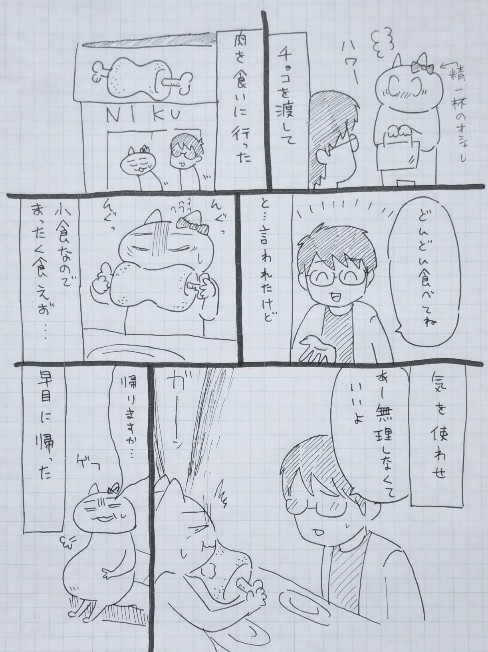 ハウー
精一杯のオシャレ
チョコを渡して
肉を食いに行った
NIKU
どんどん食べてね
と…言われたけど
んぐっ
んぐっ
小食なので
まったく食えず…
気を使わせ
あー無理しなくて
いいよ
ガーン
帰りますか…
ゲフ
早目に帰った